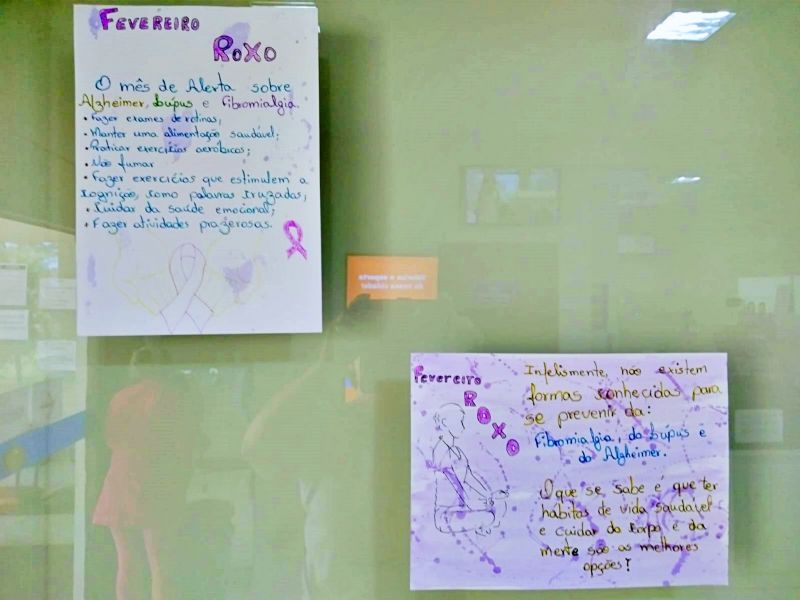 FEVEREIRO
ROXO
O mês de Alerta sobre
Alzheimer, Lúpus e Fibromialgia.
• Fazer exames de rotinas;
• Manter uma alimentação saudável;
• Praticar exercícios aeróbicos;
• Não fumar
• Fazer exercícios que estimulem a
cognição, como palavras cruzadas;
• Cuidar da saúde emocional;
• Fazer atividades prazerosas.
Fevereiro
ROXO
Infelismente, não existem
formas conhecidas para
se prevenir da:
Fibromialgia, do Lúpus e
do Alzheimer.
O que se sabe é que ter
hábitos de vida saudável
e cuidar do corpo e da
mente são as melhores
opções!